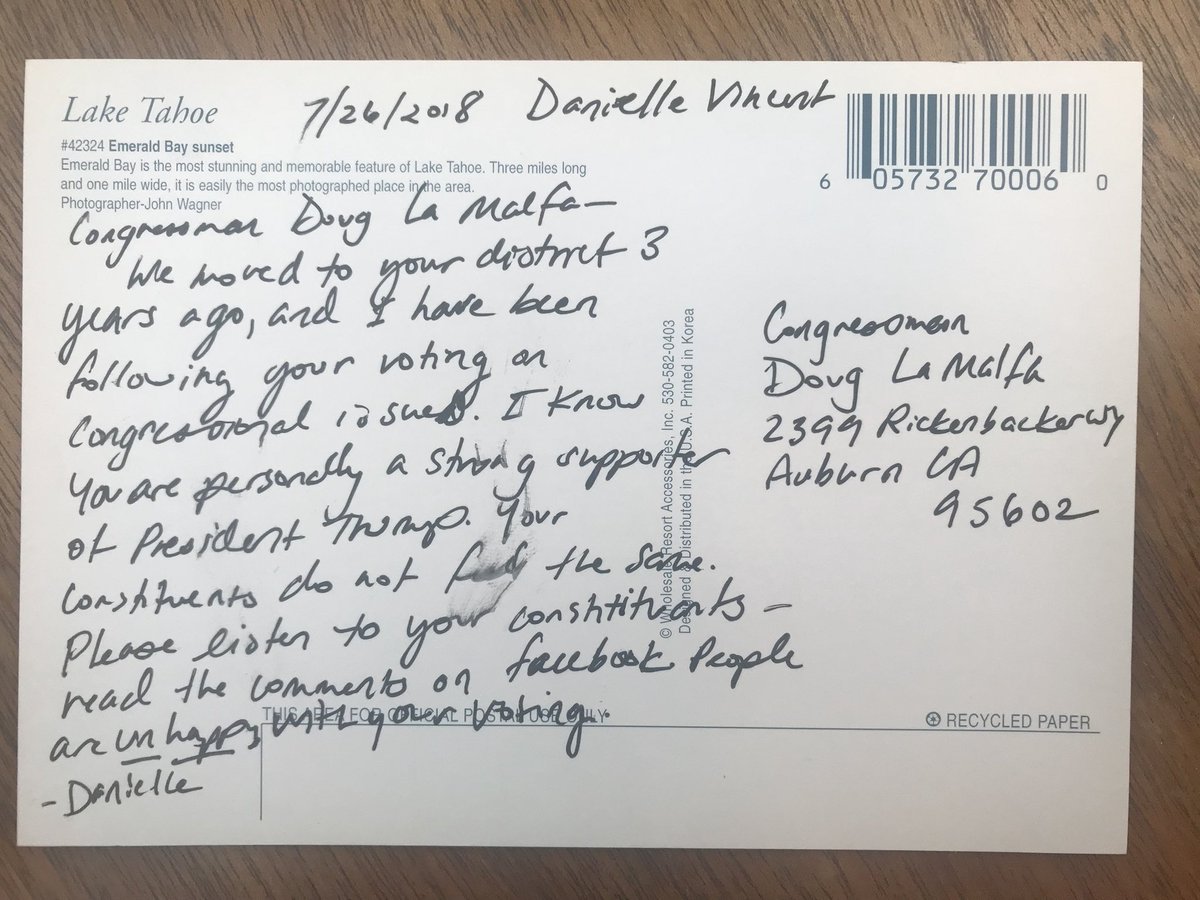 Lake Tahoe
7/26/2018 Danielle Vincent
#42324 Emerald Bay sunset
Emerald Bay is the most stunning and memorable feature of Lake Tahoe. Three miles long
and one mile wide, it is easily the most photographed place in the area.
Photographer-John Wagner
6 05732 70006 0
Congressman Doug La Malfa—
We moved to your district 3
years ago, and I have been
following your voting on
Congressional issues. I know
you are personally a strong supporter
of President Trump. Your
constituents do not feel the same.
Please listen to your constituents —
read the comments on facebook People
are unhappy with your voting.
- Danielle
© Wholesale Resort Accessories, Inc. 530-582-0403
Designed & Distributed in the U.S.A. Printed in Korea
Congressman
Doug La Malfa
2399 Rickenbacker Wy
Auburn CA
95602
THIS AREA FOR OFFICIAL POSTAL USE ONLY
RECYCLED PAPER